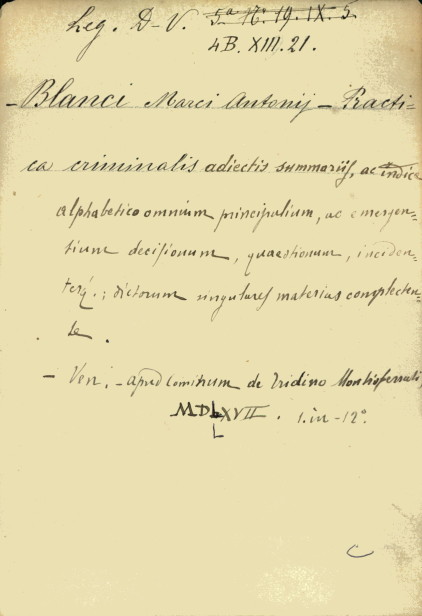 Leg. D-V. 5ª 12. 19. IX. 5.
4B. XIII. 21.
- Blanci Marci Antonij - Practi-
ca criminalis adiectis summarijs, ac indice
alphabetico omnium principalium, ac emergen-
tium decisionum, quaestionum, inciden-
terq.; dictorum singulares materias complecten-
te.
- Ven. - apud Comitium de Tridino Montisferrati,
MDLXVII. 1. in - 12°.
L
C